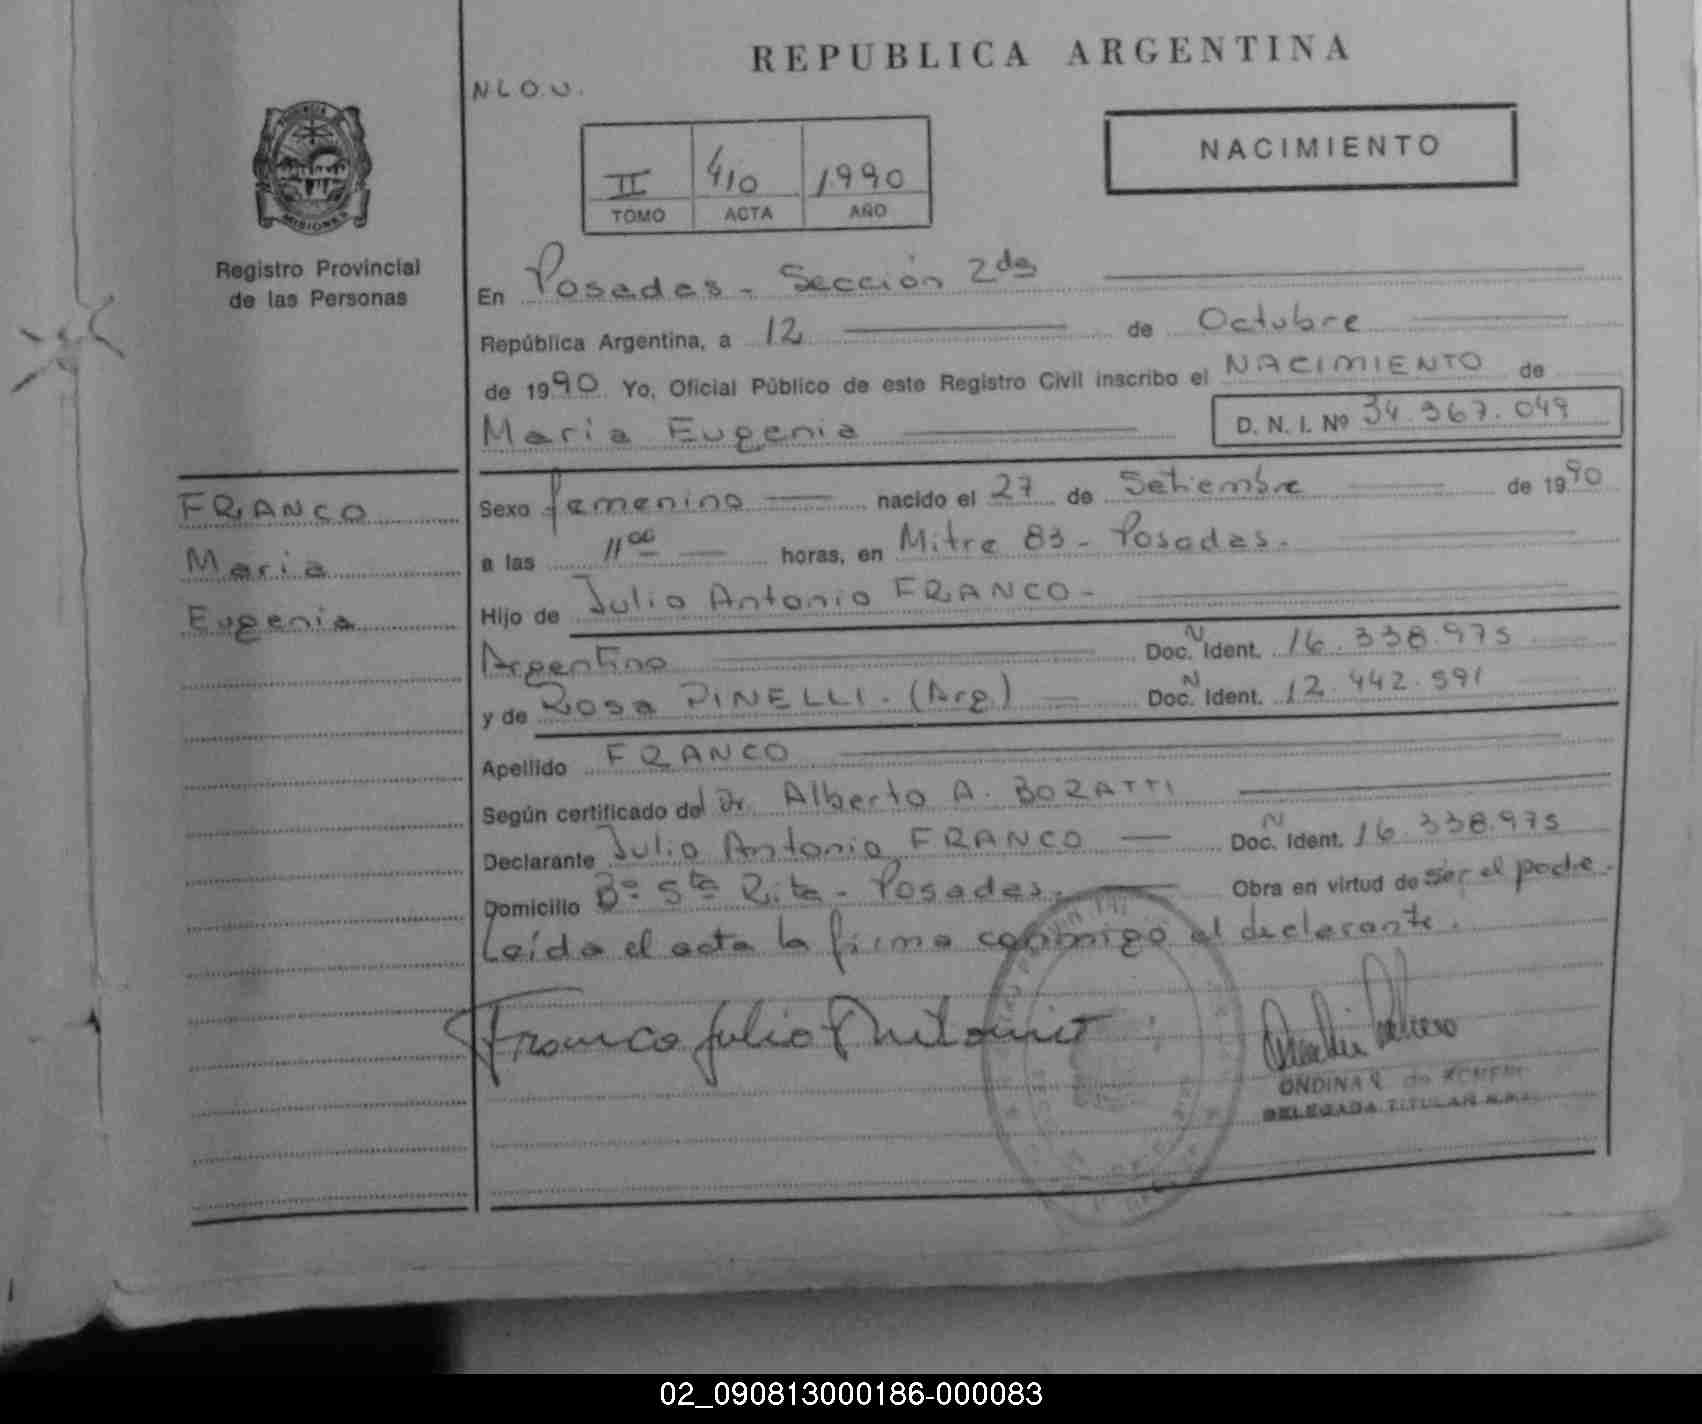 REPUBLICA ARGENTINA
N L O. U.
NACIMIENTO
II 410 1990
TOMO ACTA AÑO
PROVINCIA
MISIONES
Registro Provincial
de las Personas
En Posadas - Sección 2da
República Argentina, a 12 de Octubre
de 1990 Yo, Oficial Público de este Registro Civil inscribo el NACIMIENTO de
Maria Eugenia D. N. I. Nº 34.967.049
FRANCO
Maria
Eugenia
Sexo femenino nacido el 27 de Setiembre de 1990
a las 11 00 horas, en Mitre 83 - Posadas.
Hijo de Julio Antonio FRANCO -
Argentino Doc. N Ident. 16.338.975
y de Rosa PINELLI. (Arg.) Doc. N Ident. 12.442.591
Apellido FRANCO
Según certificado del Dr. Alberto A. BORATTI
Declarante Julio Antonio FRANCO Doc. N Ident. 16.338.975
Domicilio Bº Sta Rita - Posadas. Obra en virtud de ser el padre.
Leída el acta la firma conmigo el declarante.
Franco Julio Antonio
ONDINA R. de
DELEGADA TITULAR
02_090813000186-000083